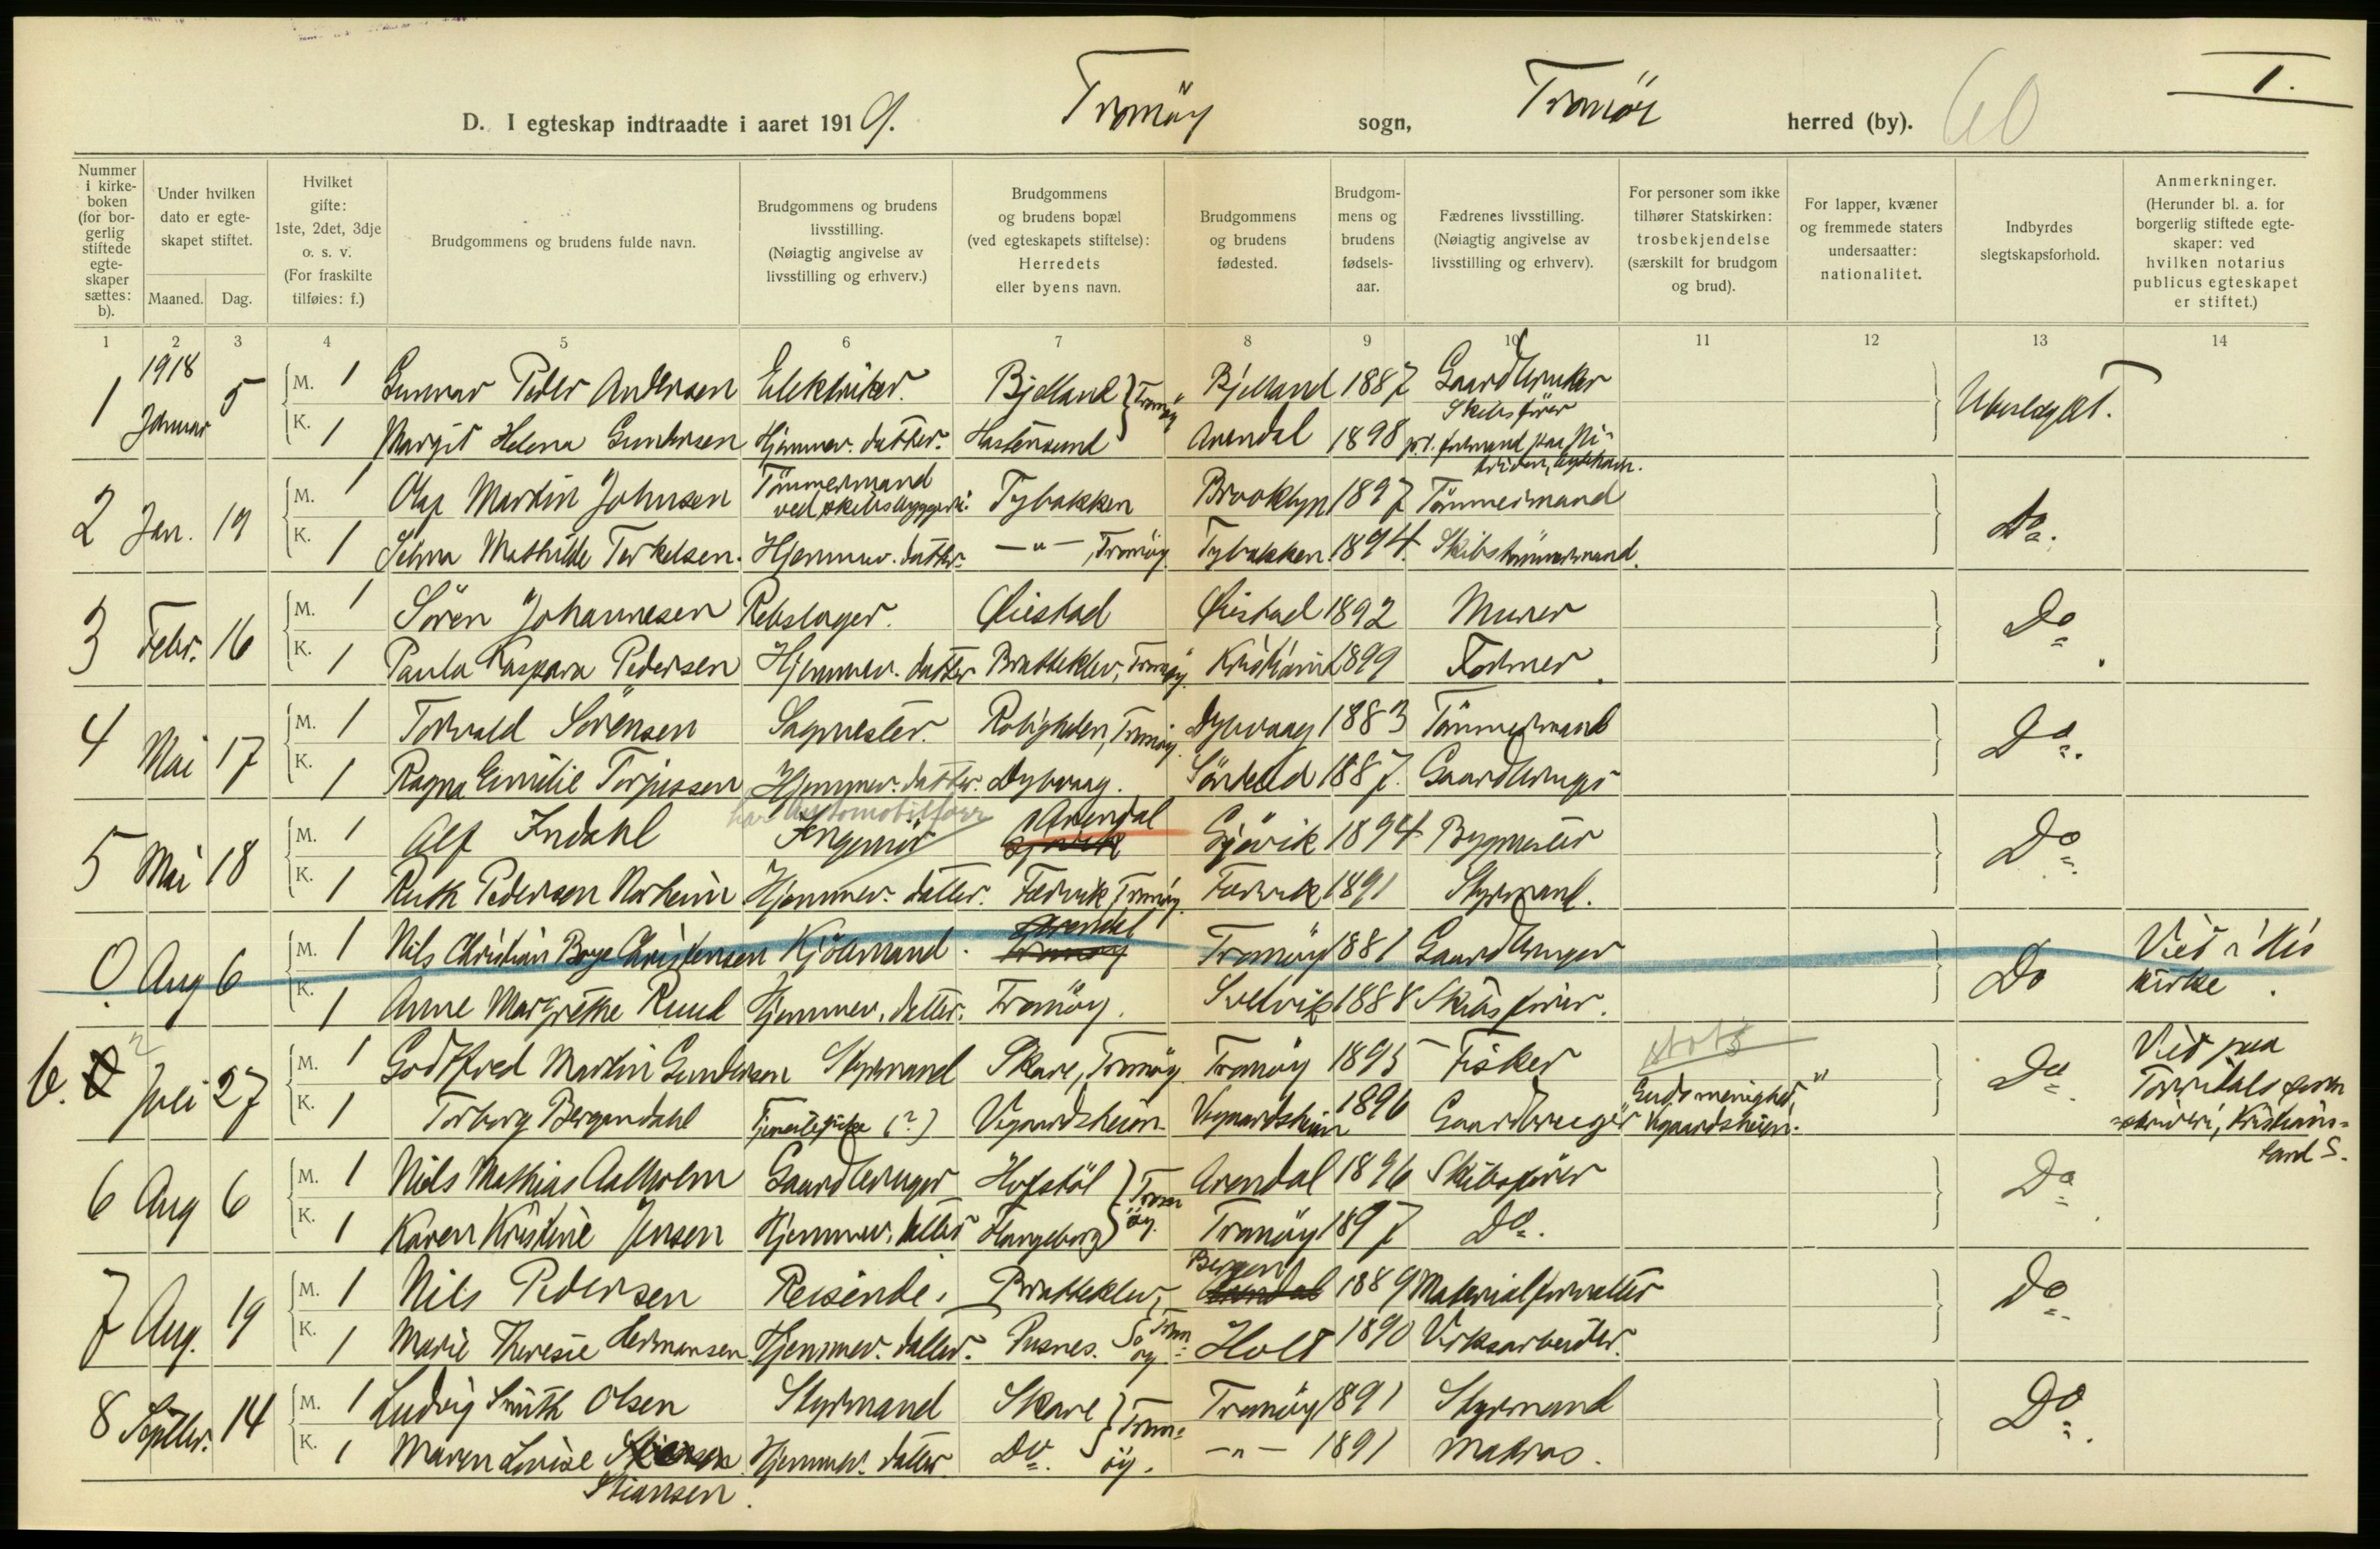 D. I egteskap indtraadte i aaret 1919. Tromöy sogn, Tromöy herred (by). 60 I.
Nummer i kirkeboken (for borgerlig stiftede egteskaper sættes: b).
Under hvilken dato er egteskapet stiftet.
Maaned. Dag.
Hvilket gifte: 1ste, 2det, 3dje o. s. v. (For fraskilte tilføies: f.)
Brudgommens og brudens fulde navn.
Brudgommens og brudens livsstilling. (Nøiagtig angivelse av livsstilling og erhverv.)
Brudgommens og brudens bopæl (ved egteskapets stiftelse): Herredets eller byens navn.
Brudgommens og brudens fødested.
Brudgommens og brudens fødselsaar.
Fædrenes livsstilling. (Nøiagtig angivelse av livsstilling og erhverv).
For personer som ikke tilhører Statskirken: trosbekjendelse (særskilt for brudgom og brud).
For lapper, kvæner og fremmede staters undersaatter: nationalitet.
Indbyrdes slegtskapsforhold.
Anmerkninger. (Herunder bl. a. for borgerlig stiftede egteskaper: ved hvilken notarius publicus egteskapet er stiftet.)
1 2 3 4 5 6 7 8 9 10 11 12 13 14
1 1918 Januar 5 M. 1 Gunnar Peder Andersen Elektriker. Bjelland Tromöy Bjelland 1887 Gaardbruker Ubeslegtet.
K. 1 Margit Helena Gundersen Hjemmev. datter. Hastensund Arendal 1898 Skibsfører
2 Jan. 19 M. 1 Olaf Martin Johnsen Tömmermand ved skibsbyggeri. Tybakken Brooklyn 1897 Tömmermand Do.
K. 1 Selma Mathilde Terkelsen. Hjemmev. datter. —"—, Tromöy. Tybakken. 1894. Skibstömmermand.
3 Febr. 16 M. 1 Sören Johannesen Rebslager. Øiestad Øiestad 1892 Murer Do.
K. 1 Paula Kaspara Pedersen Hjemmev. datter Bratteklev, Tromöy. Kristiania 1899 Former.
4 Mai 17 M. 1 Torvald Sörensen Sagmester. Roligheden, Tromöy. Dybvaag 1883 Tömmermand Do.
K. 1 Ragna Emilie Torjussen Hjemmev. datter. Dybvaag. Söndeled 1887. Gaardbruger
5 Mai 18 M. 1 Alf Indahl har Automobilforr Ingeniör Arendal Gjövik Gjövik 1894 Bygmester Do.
K. 1 Ruth Pedersen Norheim Hjemmev. datter. Færvik, Tromöy. Færvik 1891 Styrmand.
0. Aug 6 M. 1 Nils Christian Boye Christensen Kjöbmand. Arendal Tromöy Tromöy 1881 Gaardbruger Do Viet i His kirke.
K. 1 Anne Margrethe Ruud Hjemmev. datter. Tromöy. Svelvik 1888 Skibsfører.
6. Juli 27 M. 1 Godtfred Martin Gundersen Styrmand Skare, Tromöy. Tromöy 1895 Fisker Do. Viet paa Torridals sorenskriveri, Kristiansand S.
K. 1 Torborg Bergendahl Tjenestepike (?) Vegaardsheien Vegaardsheien 1896 Gaardbruger Guds menighed, Vegaardsheien.
6 Aug 6 M. 1 Niels Mathias Aalholm Gaardbruger Hofstöl Tromöy. Arendal 1896 Skibsfører Do.
K. 1 Karen Kristine Jensen Hjemmev. datter Tromöy 1897 Do.
7 Aug. 19 M. 1 Nils Pedersen Reisende. Bratteklev, Tromöy Bergen 1889 Materialforvalter Do.
K. 1 Marie Theresie Hermansen Hjemmev. datter. Pusnes. Holt 1890 Verksarbeider.
8 Septbr. 14 M. 1 Ludvig Smith Olsen Styrmand Skare Tromöy. Tromöy 1891 Styrmand Do.
K. 1 Maren Lovise Hjemmev. datter. Do. —"— 1891 Matros.
Stiansen.